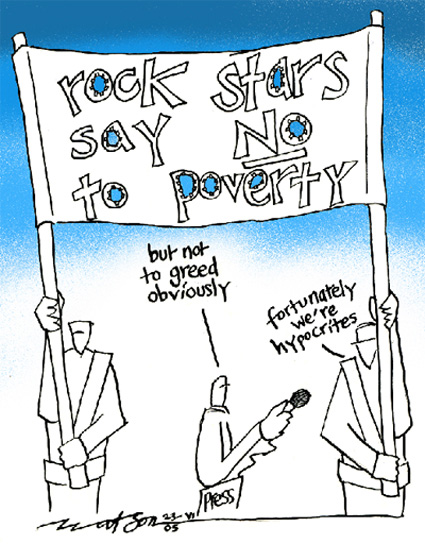 rock stars
say NO
to poverty
but not
to greed
obviously
fortunately
we're
hypocrites
Press
23 VI
05